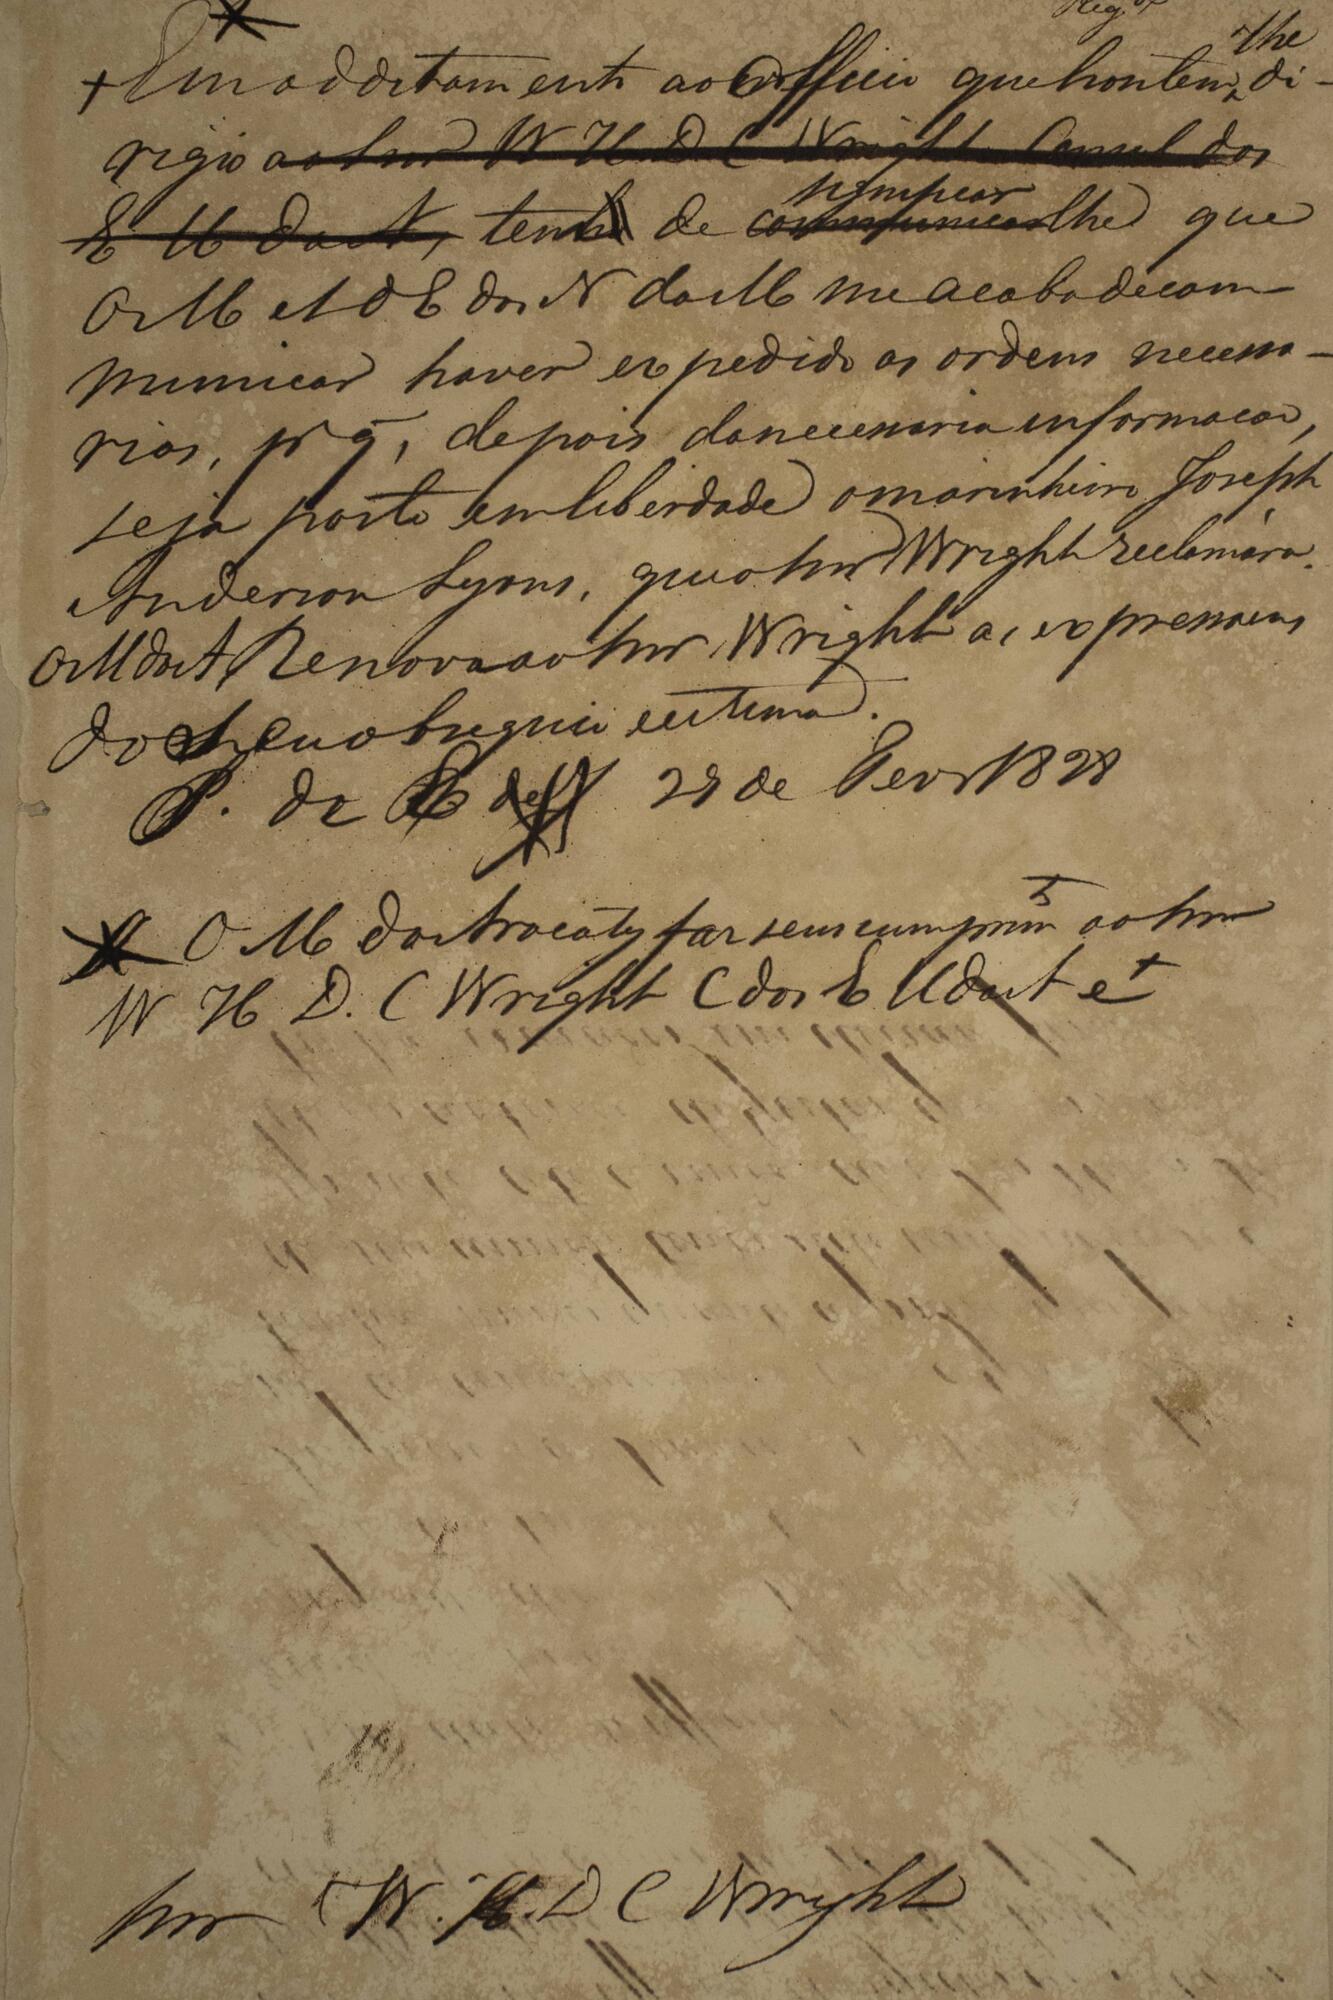 Reg.do
+ Em additamento ao Officio que hontem lhe di-
rigio ao Snr W H D C Wright Consul dos
E U da A, tenho de communicar lhe que
participar
O M e S d E dos N da M me acaba de com-
municar haver expedido as ordens necessa-
rias, pa q, depois da necessaria informacao,
seja posto em liberdade o marinheiro Joseph
Anderson Lyons, que o Snr Wright reclamára.
O M da A Renova ao Snr Wright as expressoens
do seu obsequio e estima.
P. do R de J 29 de Fevro 1828
O M do Aracaty faz seus cumprimtos ao Snr
W H D. C Wright C dos E U da A e
Snr W. H. D C Wright